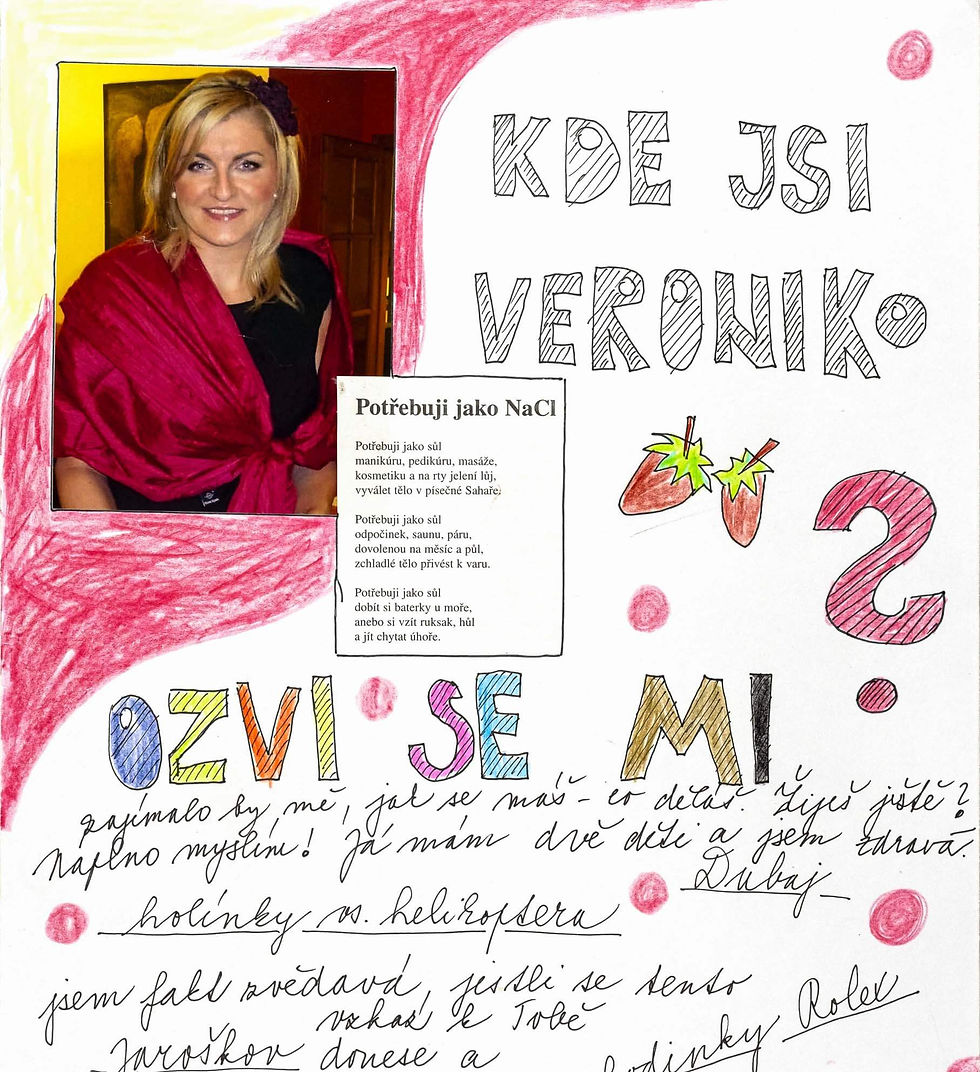 KDE JSI
VERONIKO
?
Potřebuji jako NaCl
Potřebuji jako sůl
manikúru, pedikúru, masáže,
kosmetiku a na rty jelení lůj,
vyválet tělo v písečné Sahaře.
Potřebuji jako sůl
odpočinek, saunu, páru,
dovolenou na měsíc a půl,
zchladlé tělo přivést k varu.
Potřebuji jako sůl
dobít si baterky u moře,
anebo si vzít ruksak, hůl
a jít chytat úhoře.
OZVI SE MI
zajímalo by mě, jak se máš - co děláš. Žiješ jistě?
Naplno myslím! Já mám dvě děti a jsem zdravá.
Dubaj
holínky vs. helikoptera
jsem fakt zvědavá, jestli se tento
vzkaz k Tobě
Jaroškov donese a
hodinky Rolex